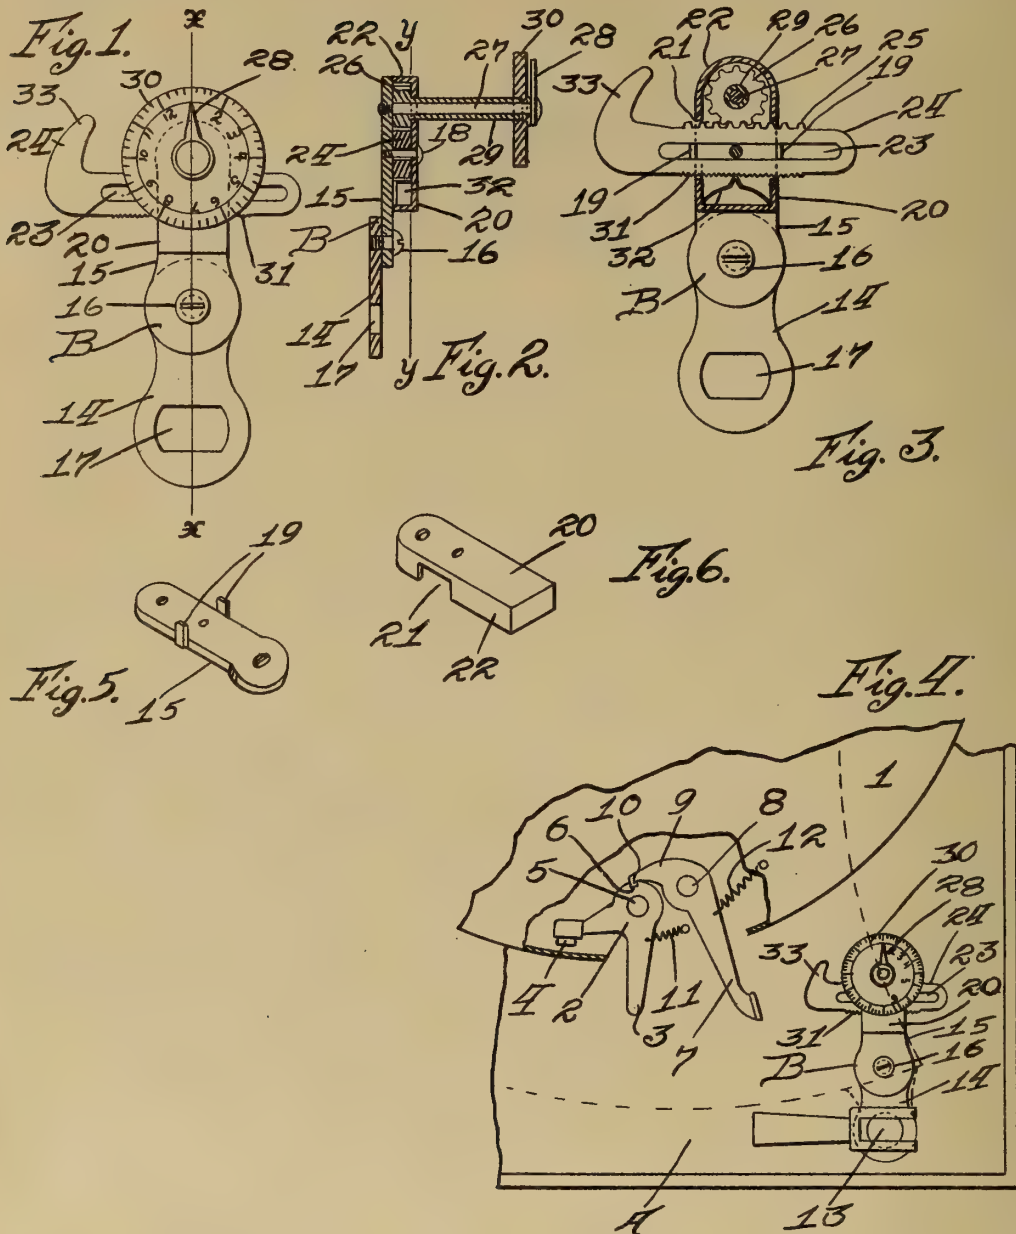 Fig. 1.
x
28
30
33
24
12
2
3
4
5
6
7
8
9
10
11
23
20
15
31
16
B
14
17
x
22
y
26
30
28
27
24
18
29
15
32
20
B
16
14
17
y
Fig. 2.
22
29
26
27
25
19
21
33
24
23
19
31
20
32
15
16
B
14
17
Fig. 3.
19
Fig. 5.
15
20
21
22
Fig. 6.
Fig. 4.
1
10
9
8
6
12
5
30
28
24
33
23
20
4
2
11
3
7
31
15
16
B
14
A
13